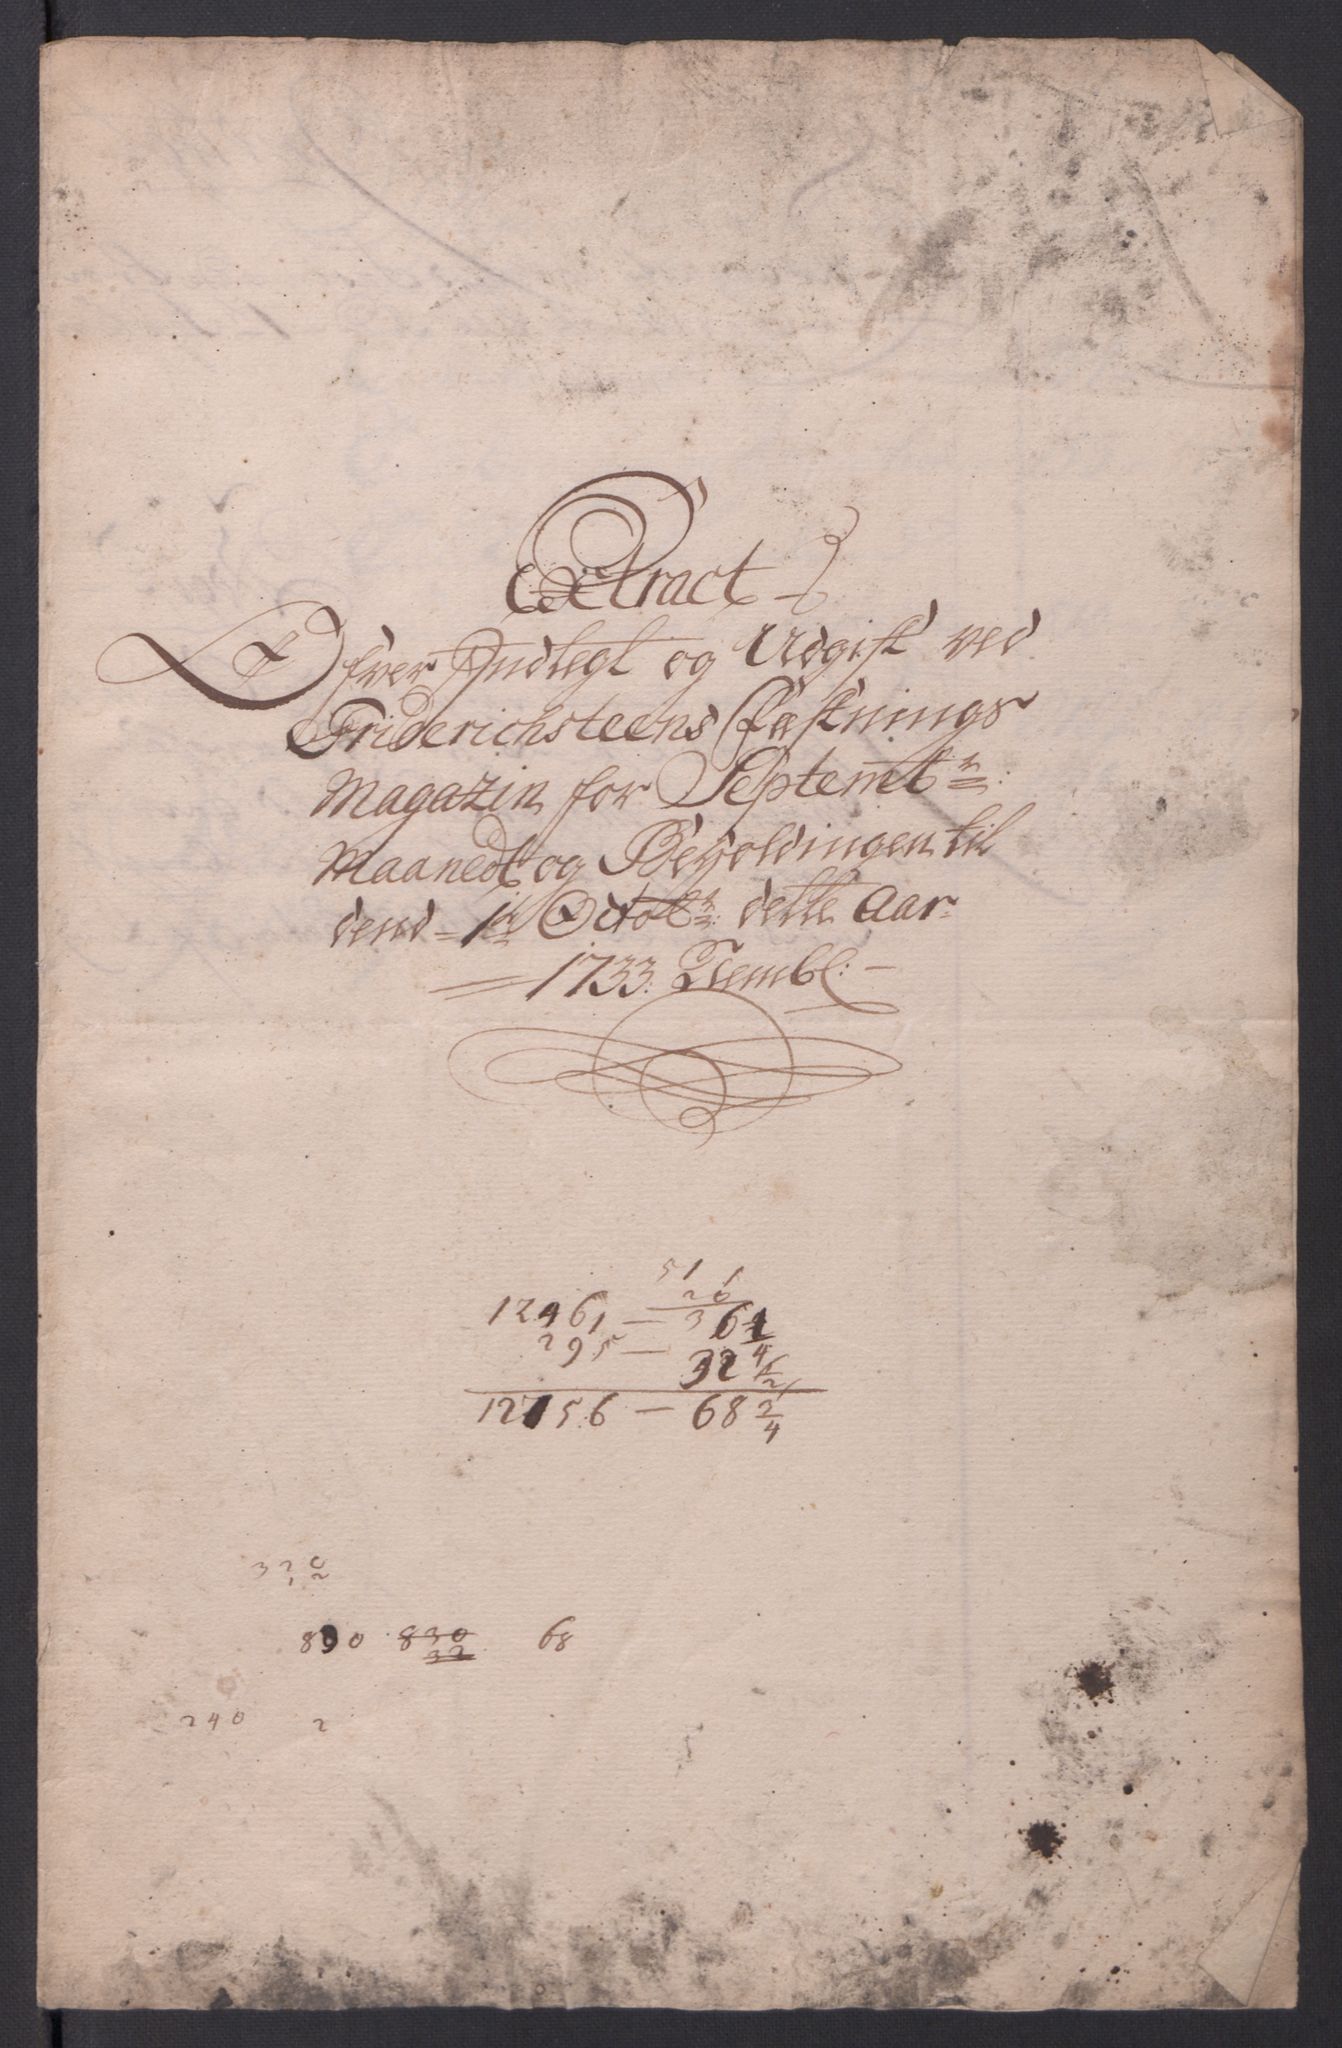 Extract
Ofver Indlegt og Udgift ved
Friderichsteens Fæstnings
Magazin for Septembr:
Maanedt og Beholdingen til
dend 1ste Octobr: dette Aar
1733.
51 1
20
12461 — 36 1/4
295 — 32 1/2
12756 — 68 2/4
890 830 68
32
240 2